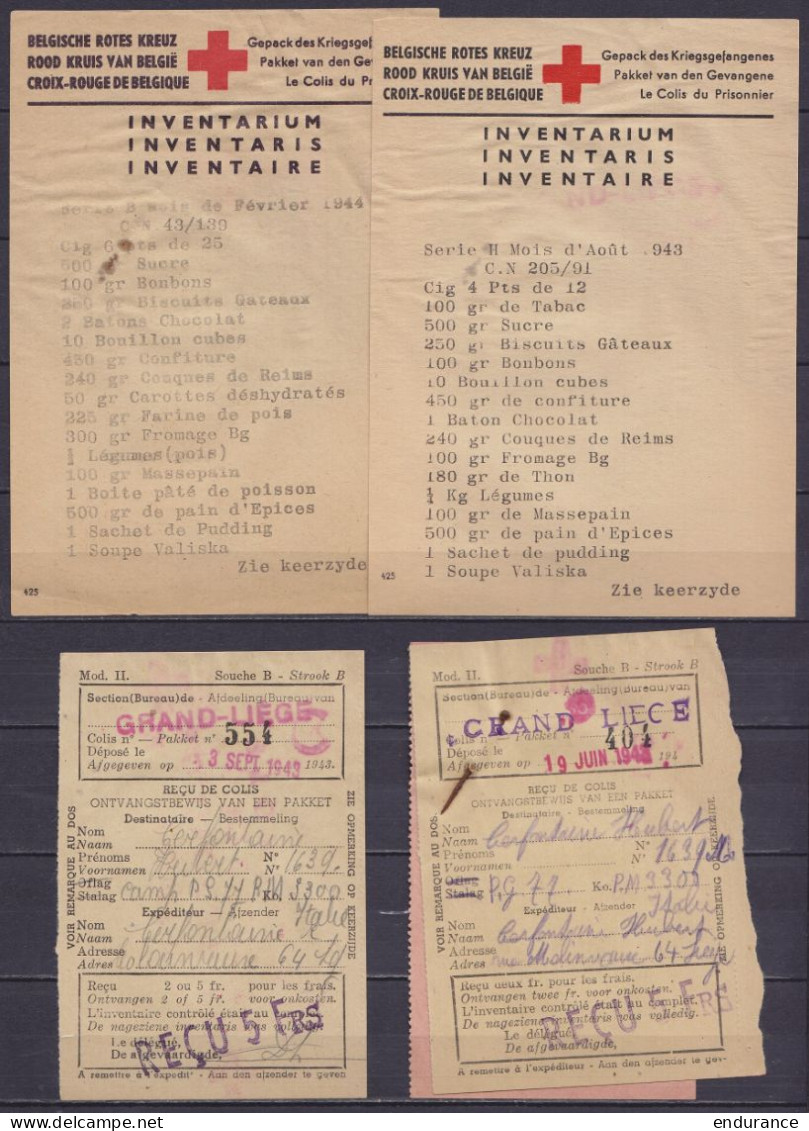 BELGISCHE ROTES KREUZ
ROOD KRUIS VAN BELGIË
CROIX-ROUGE DE BELGIQUE
Gepack des Kriegsgef
Pakket van den Gev
Le Colis du Pr
INVENTARIUM
INVENTARIS
INVENTAIRE
Serie B Mois de Février 1944
C.N 43/139
Cig 6 Pts de 25
500 gr Sucre
100 gr Bonbons
250 gr Biscuits Gateaux
2 Batons Chocolat
10 Bouillon cubes
450 gr Confiture
240 gr Couques de Reims
50 gr Carottes déshydratés
225 gr Farine de pois
300 gr Fromage Bg
Légumes(pois)
100 gr Massepain
1 Boite pâté de poisson
500 gr de pain d'Epices
1 Sachet de Pudding
1 Soupe Valiska
Zie keerzyde
425
BELGISCHE ROTES KREUZ
ROOD KRUIS VAN BELGIË
CROIX-ROUGE DE BELGIQUE
Gepack des Kriegsgefangenes
Pakket van den Gevangene
Le Colis du Prisonnier
INVENTARIUM
INVENTARIS
INVENTAIRE
Serie H Mois d'Août .943
C.N 205/91
Cig 4 Pts de 12
100 gr de Tabac
500 gr Sucre
250 gr Biscuits Gâteaux
100 gr Bonbons
10 Bouillon cubes
450 gr de confiture
1 Baton Chocolat
240 gr Couques de Reims
100 gr Fromage Bg
180 gr de Thon
Kg Légumes
100 gr de Massepain
500 gr de pain d'Epices
1 Sachet de pudding
1 Soupe Valiska
Zie keerzyde
425
Mod. II. Souche B - Strook B
Section(Bureau)de - Afdeeling(Bureau)van
GRAND-LIEGE
Colis n° — Pakket n° 554
Déposé le
Afgegeven op 3 SEPT 1943 1943.
REÇU DE COLIS
ONTVANGSTBEWIJS VAN EEN PAKKET
Destinataire - Bestemmeling
Nom
Naam Cerfontaine
Prénoms N°
Voornamen Hubert N° 1639
Oflag
Stalag Camp P.G 77 Ko. P.M 3300
Italie
Expéditeur - Afzender
Nom
Naam Cerfontaine
Adresse
Adres 64 Lg
Reçu 2 ou 5 fr. pour les frais.
Ontvangen 2 of 5 fr. voor onkosten.
L'inventaire contrôlé était au complet.
De nageziene inventaris was volledig.
Le délégué,
De afgevaardigde,
REÇU 5 FRS
A remettre à l'expédit - Aan den afzender te geven
VOIR REMARQUE AU DOS
ZIE OPMERKING OP KEERZIJDE
Mod. II. Souche B - Strook B
Section(Bureau)de - Afdeeling(Bureau)van
GRAND LIEGE
Colis n° — Pakket n° 404
Déposé le
Afgegeven op 19 JUIN 1943 194
REÇU DE COLIS
ONTVANGSTBEWIJS VAN EEN PAKKET
Destinataire - Bestemmeling
Nom
Naam Cerfontaine Hubert
Prénoms N°
Voornamen N° 1639
Oflag
Stalag P.G 77. Ko. P.M 3300
Italie
Expéditeur - Afzender
Nom
Naam Cerfontaine Hubert
Adresse
Adres rue Molinvaux 64 Liege
Reçu deux fr. pour les frais.
Ontvangen twee fr. voor onkosten.
L'inventaire contrôlé était au complet.
De nageziene inventaris was volledig.
Le délégué,
De afgevaardigde,
REÇU 5 FRS
A remettre à l'expéditeur - Aan den afzender te gev
VOIR REMARQUE AU DOS
ZIE OPMERKING OP KEERZIJDE
www.delcampe.net
endurance